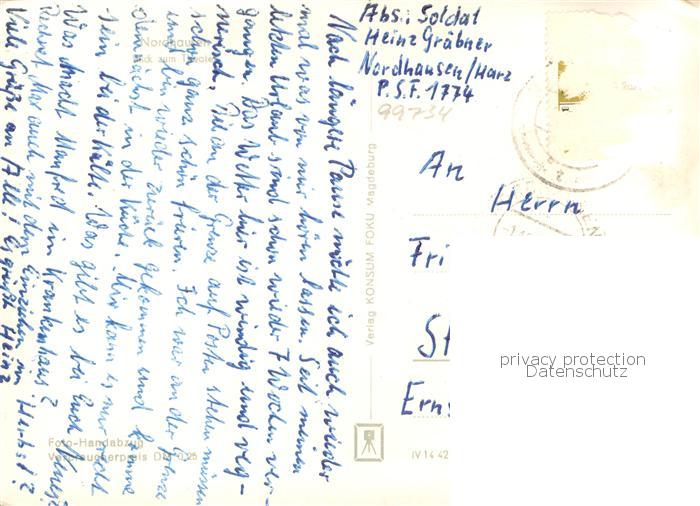 Nach länger Pause möchte ich auch wieder
mal was von mir hören lassen. Seit meinem
letzten Urlaub sind schon wieder 7 Wochen ver-
gangen. Das Wetter hier ist windig und reg-
nerisch, die an der Grenze auf Posten stehen müssen
schon ganz schön frieren. Ich war an der Grenze
und bin wieder zurück gekommen und komme
demnächst in der Küche. Mir kann es nur recht
sein bei der Kälte. Was gibt es bei Euch Neues?
Was macht Manfred im Krankenhaus?
Rechnet Max auch mit den Einziehn im Herbst?
Viele Grüße an Alle! Es grüßt Heinz
Abs.: Soldat
Heinz Gräbner
Nordhausen/Harz
P.S.F. 1774
99734
An
Herrn
Fri
St
Erns
Nordhausen
Blick zum Theater
Verlag KONSUM FOKU Magdeburg
Foto-Handabzug
Verbraucherpreis DM 0,25
IV 14 42
privacy protection
Datenschutz